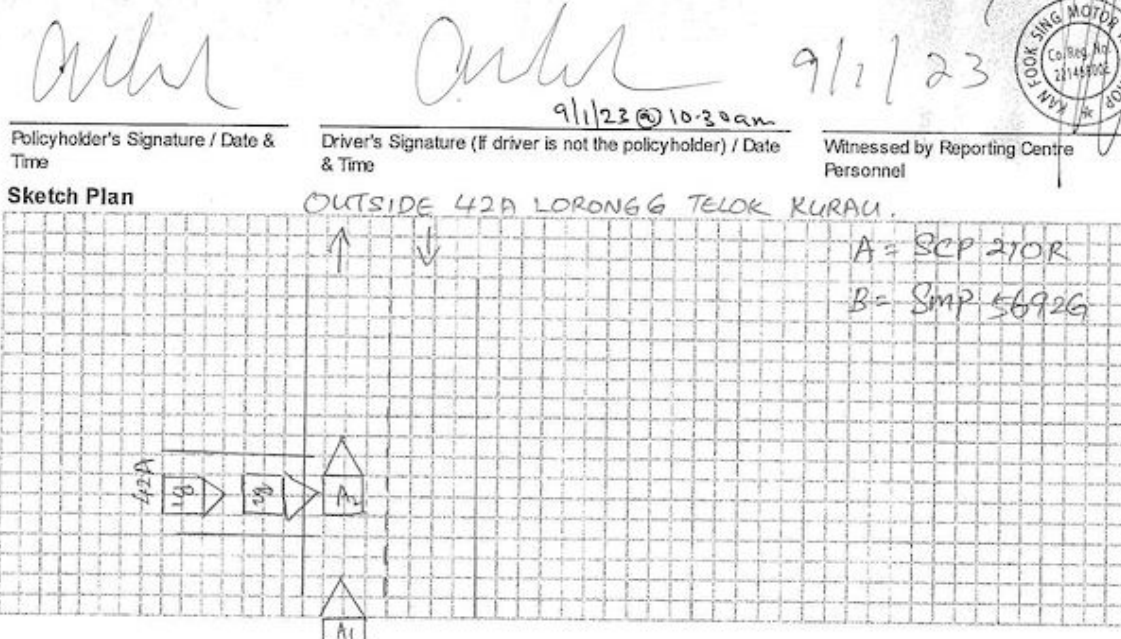 9/1/23
KAN FOOK SING MOTOR
Co. Reg. No.
9/1/23 @ 10.30am
Policyholder's Signature / Date & Time
Driver's Signature (If driver is not the policyholder) / Date & Time
Witnessed by Reporting Centre Personnel
Sketch Plan
OUTSIDE 42A LORONG G TELOK KURAU.
A = SCP 210R
B = SMP 5692G
42A
B1
B2
A2
A1